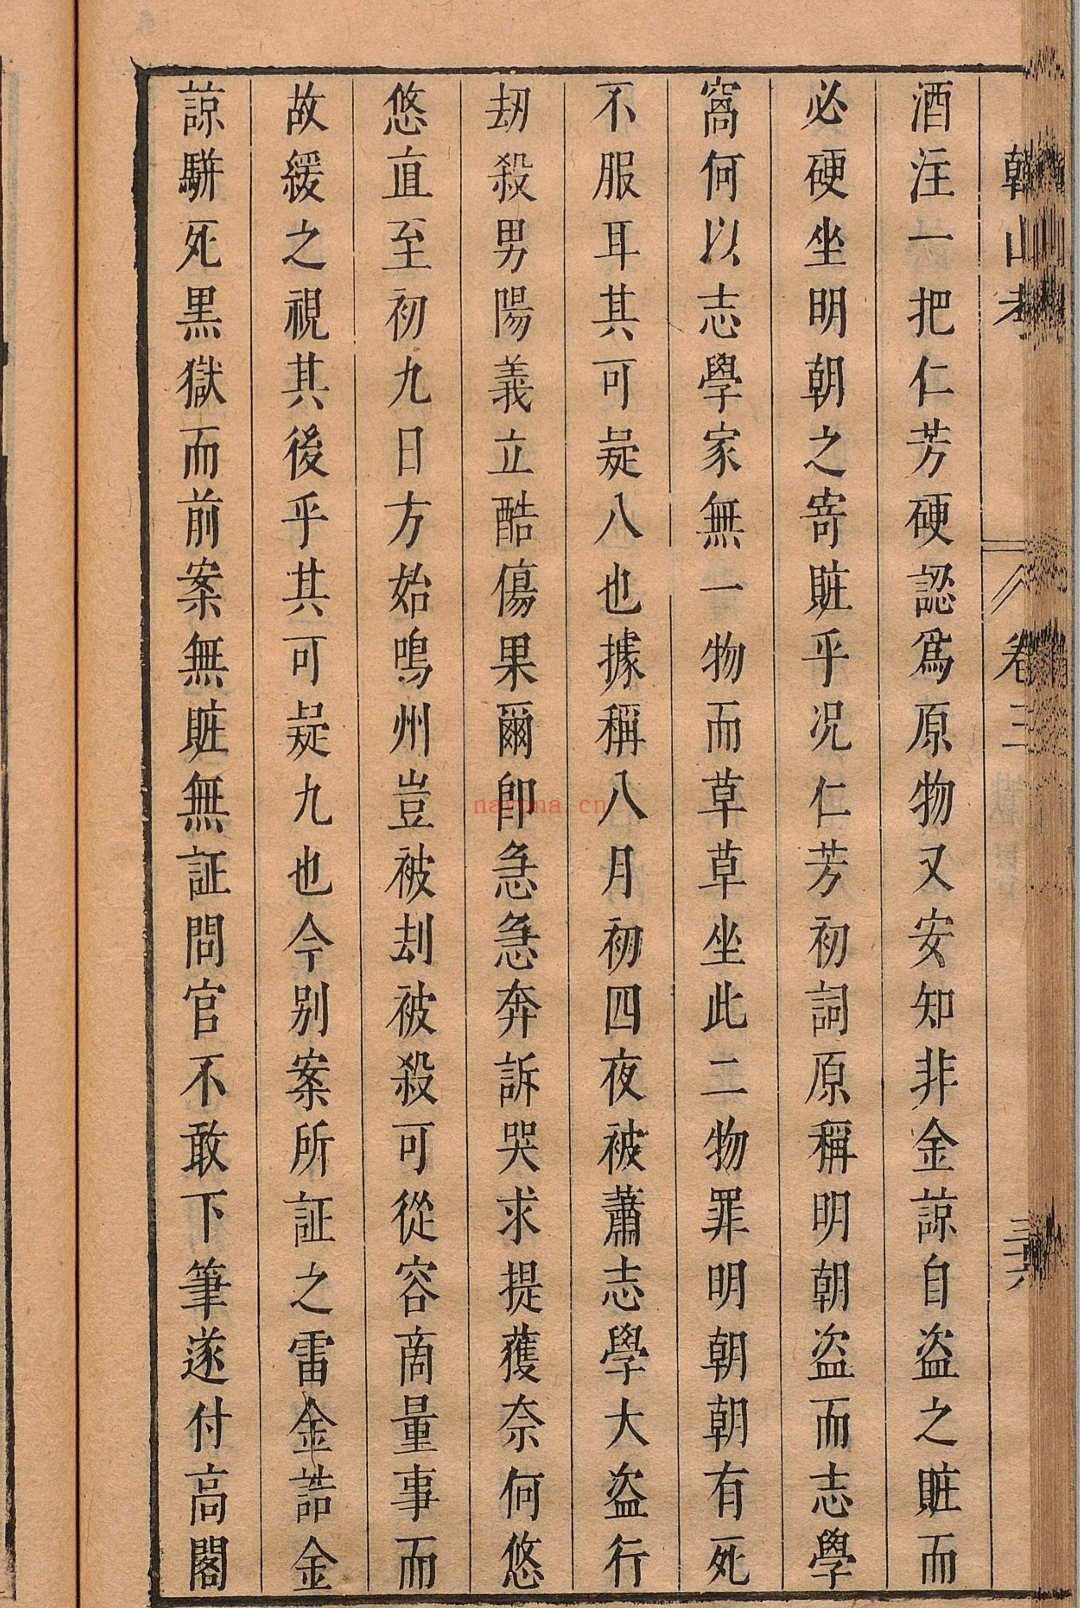 酒注一把仁芳硬認爲原物又安知非金諒自盜之賍而
必硬坐明朝之寄賍乎况仁芳初詞原稱明朝盜而志學
窩何以志學家無一物而草草坐此二物罪明朝朝有死
不服耳其可疑八也據稱八月初四夜被蕭志學大盜行
刼殺男陽義立酷傷果爾卽急急奔訴哭求提獲奈何悠
悠直至初九日方始鳴州豈被刦被殺可從容商量事而
故緩之視其後乎其可疑九也今别案所証之雷金誥金
諒駢死黑獄而前案無賍無証問官不敢下筆遂付高閣
山 卷三
naypma.cn